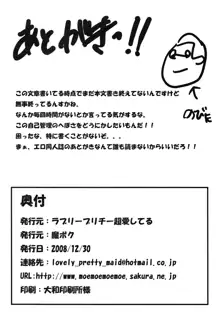 あとがきっ!!
のびた
この文章書いてる時点でまだ本文書き終えてないんですけど
無事終ってるんすかね。
なんか毎回時間がないとか言ってる気がするな。
この自己管理のへぼさをどうにかしたいもんだ!!
困ったな、特に書くことないぞ、、、
まぁ、エロ同人誌のあとがきなんて誰も読まないからいいだろ!!
奥付
発行元:ラブリープリチー超愛してる
発行元:魔ボク
発行日:2008/12/30
連絡先:lovely_pretty_maid@hotmail.co.jp
URL:http://www.moemoemoemoe.sakura.ne.jp
印刷:大和印刷所様